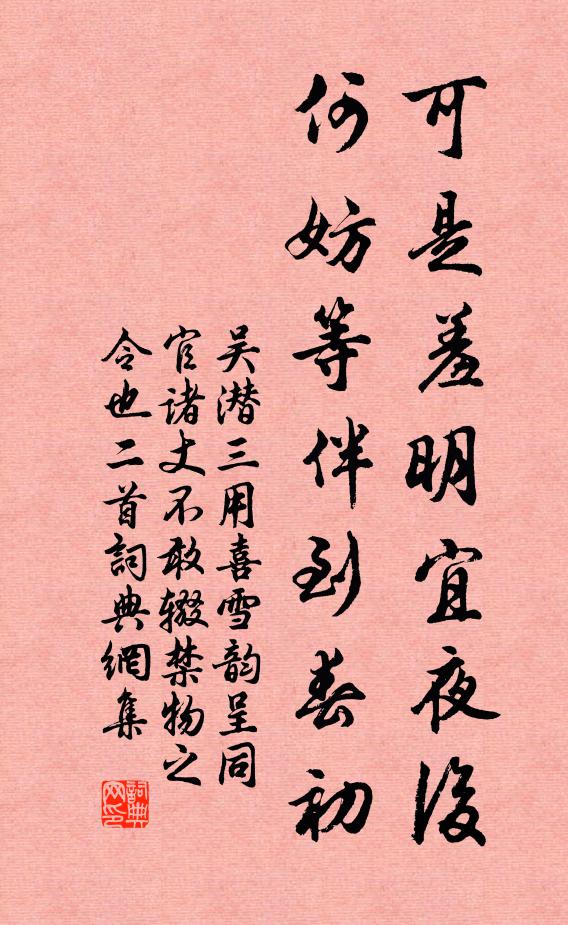 可是羞明宜夜後
何妨等伴到春初
吴潜三用喜雪韵呈同
官诸丈不敢辍禁物之
令也二首詞典網集
詞典网印